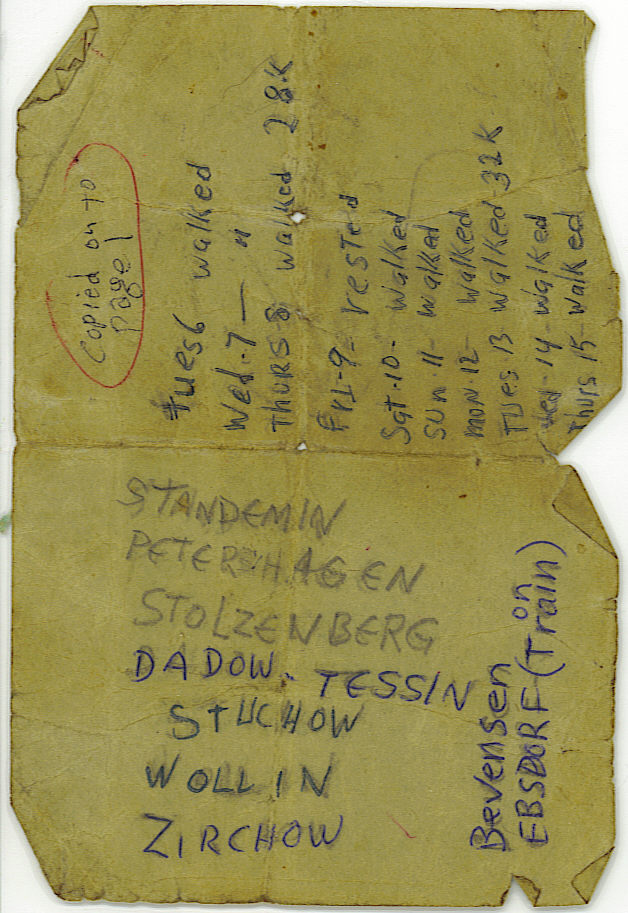 Copied on to
page 1
tues 6 walked
Wed. 7 — "
THURS 8 walked 28K
FrI-9- rested
Sat-10- walked
SUN 11- walked
MON-12- walked
TUES 13 walked 32K
Wed-14-walked
Thurs 15-walked
STANDEMIN
PETERSHAGEN
STOLZENBERG
DADOW. TESSIN
STUCHOW
WOLLIN
ZIRCHOW
Bevensen
EBSDORF (on Train)